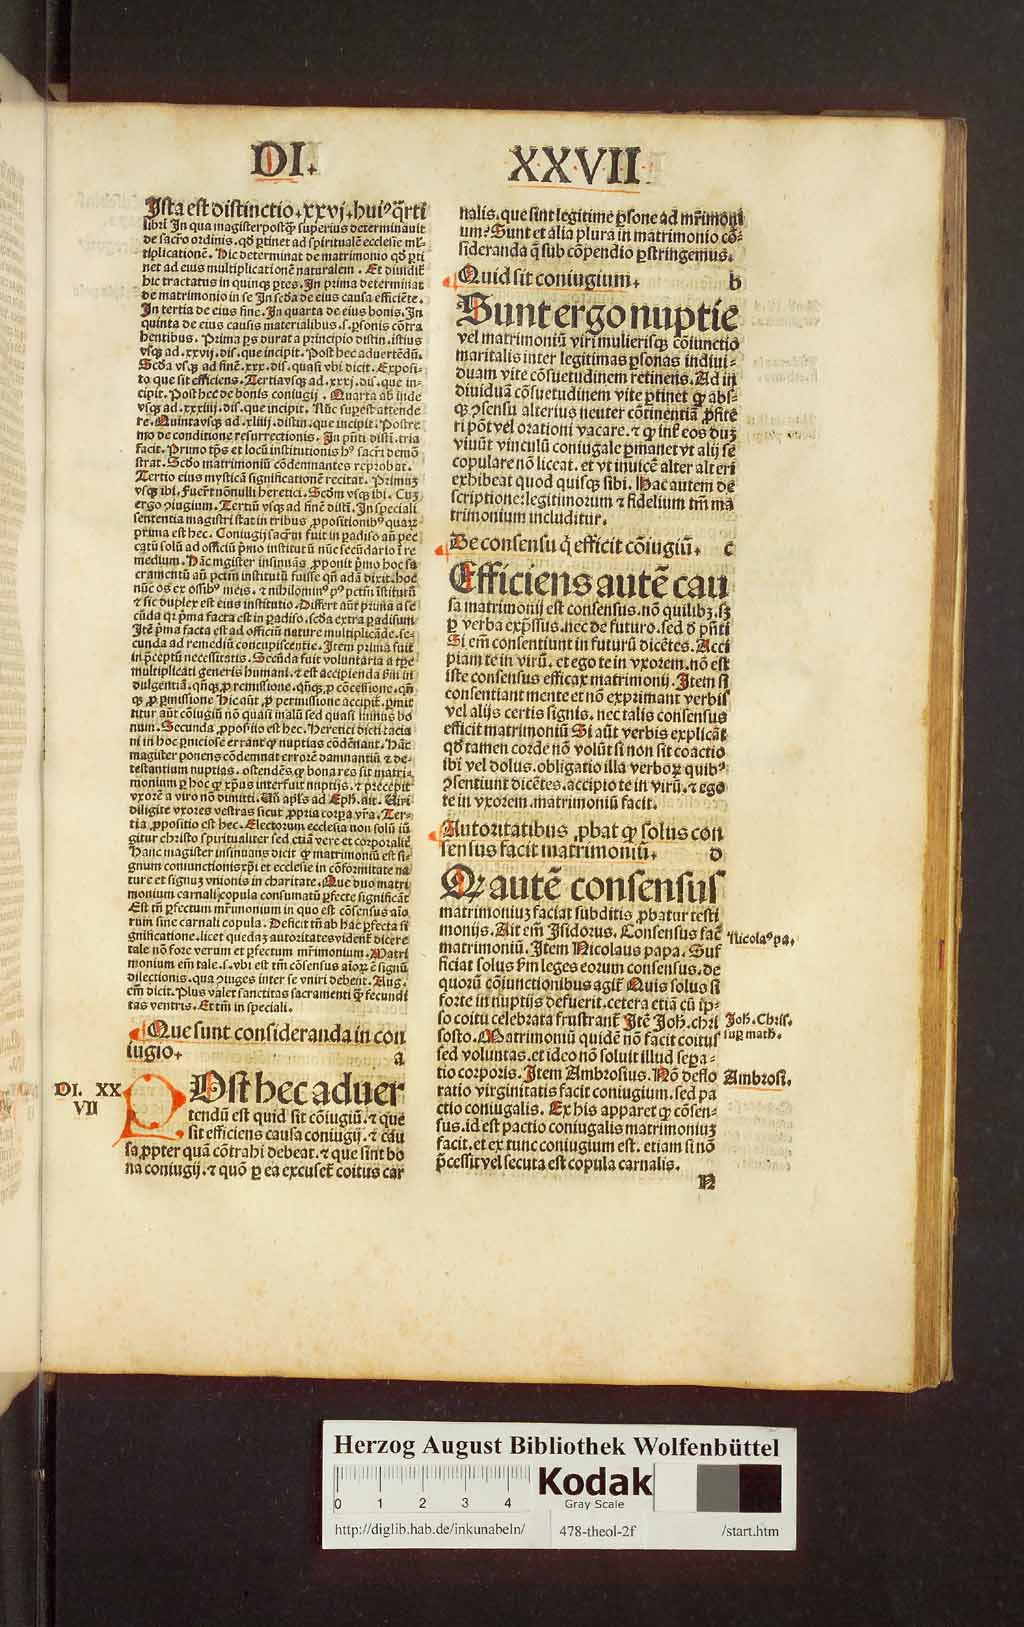 DI.
XXVII
Ista est distinctio.xxvj.huiꝰ q̃rti
libri In qua magister postq̃ʒ superius determinauit
de sacro ordinis. qđ ꝑtinet ad spiritualẽ ecclesie ml̃-
tiplicationẽ. Hic determinat de matrimonio qđ ꝑti
net ad eius multiplicationẽ naturalem. Et diuidit̃
hic tractatus in quinqʒ ꝑtes. In prima determinat
de matrimonio in se In scđa de eius causa efficiẽte.
In tertia de eius fine. In quarta de eius bonis. In
quinta de eius causis materialibus.s.ꝑsonis cõtra
hentibus. Prima ꝑs durat a principio distin.istius
vsqʒ ad.xxvij.dis.que incipit. Post hec aduertẽdũ.
Scđa vsqʒ ad finẽ.xxx.dis.quasi vbi dicit. Exposi-
to que sit efficiens. Tertia vsqʒ ad.xxxj.dis.que in-
cipit. Post hec de bonis coniugij. Quarta ab inde
vsqʒ ad.xxxiiij.dis.que incipit. Nũc suꝑest attende
re. Quinta vsqʒ ad.xliij.distin.que incipit. Postre
mo de conditione resurrectionis. In pñti disti.tria
facit. Primo tꝑs et locũ institutionis hꝰ sacri demõ
strat. Scđo matrimoniũ cõdemnantes reprobat.
Tertio eius mysticã significationẽ recitat. Primuʒ
vsqʒ ibi. Fuerũt nonnulli heretici. Scđm vsqʒ ibi. Cuʒ
ergo ꝯiugium. Tertiũ vsqʒ ad finẽ disti. In speciali
sententia magistri stat in tribus ꝓpositionibꝰ quaꝝ
prima est hec. Coniugij sacrm̃ fuit in ꝑadiso añ pec
catũ solũ ad officiũ p̃mo institutũ nũc secũdario ĩ re
medium. Hãc magister insinuãs ꝓponit p̃mo hoc sa
cramentũ añ pctm̃ institutũ fuisse qñ adã dixit. hoc
nũc os ex ossibꝰ meis. ⁊ nihilominꝰ pꝰ pctm̃ istitutũ
⁊ sic duplex est eius institutio. Differt aũt prima a se
cũda qꝛ p̃ma facta est in ꝑadiso. scđa extra ꝑadisum
Itẽ p̃ma facta est ad officiũ nature multiplicãde. se-
cunda ad remediũ concupiscentie. Item prima fuit
in p̃ceptũ necessitatis. Secũda fuit voluntaria a tꝑe
multiplicati generis humani. ⁊ est accipienda ẜm in
dulgentiã. qñqʒ ꝓ remissione. qñqʒ ꝓ cõcessione. qñ
qʒ ꝓ ꝑmissione Hic aũt ꝓ permissione accipit̃. ꝑmit
titur aũt cõiugiũ nõ quasi malũ sed quasi minus bo
num. Secunda ꝓpositio est hec. Heretici dicti tacia
ni in hoc ꝑniciose errant qꝫ nuptias cõdẽnant. Hãc
magister ponens cõdemnat errorẽ damnantiũ ⁊ de-
testantium nuptias. ostendẽs qꝫ bona res sit matri-
monium ꝑ hoc qꝫ xp̃us interfuit nuptijs. ⁊ precepit
vxorẽ a viro nõ dimitti. Vñ apl̃s ad Eph̃.vlt. Viri
diligite vxores vestras sicut ꝓpria corꝑa vr̃a. Ter-
tia ꝓpositio est hec. Electorum ecclesia non solũ iũ
gitur christo spiritualiter sed etiã vere et corporalit̃
Hanc magister insinuans dicit qꝫ matrimoniũ est si-
gnum coniunctionis xp̃i et ecclesie in cõformitate na
ture et signuʒ vnionis in charitate. Que duo matri
monium carnali copula consumatũ ꝑfecte significãt
Est tñ ꝑfectum mr̃imonium in quo est cõsensus aĩo
rum sine carnali copula. Deficit tñ ab hac ꝑfecta si
gnificatione. licet quedaʒ autoritates vident̃ dicere
tale nõ fore verum et ꝑfectum mr̃imonium. Matri
monium em̃ tale.s.vbi est tm̃ cõsensus aĩoꝝ ẽ signũ
dilectionis. qua ꝯiuges inter se vniri debent. Aug.
em̃ dicit. Plus valet sanctitas sacramenti q̃ʒ fecundi
tas ventris. Et tm̃ in speciali.
Que sunt consideranda in con
iugio. a
DI. XX
VII
POst hec aduer
tendũ est quid sit cõiugiũ. ⁊ que
sit efficiens causa coniugij. ⁊ cau
sa ꝓpter quã cõtrahi debeat. ⁊ que sint bo
na coniugij. ⁊ quõ ꝑ ea excuset̃ coitus car
nalis. que sint legitime ꝑsone ad mr̃imoni
um? Sunt et alia plura in matrimonio cõ-
sideranda q̃ sub cõpendio ꝑstringemus.
Quid sit coniugium. b
Sunt ergo nuptie
vel matrimoniũ viri mulierisqʒ cõiunctio
maritalis inter legitimas ꝑsonas indiui-
duam vite cõsuetudinem retinens. Ad in
diuiduã cõsuetudinem vite ꝑtinet qꝫ abs-
qʒ ꝯsensu alterius neuter cõtinentiã ꝓfite
ri põt vel orationi vacare. ⁊ qꝫ int̃ eos duʒ
viuũt vinculũ coniugale ꝑmanet vt alij se
copulare nõ liceat. et vt inuicẽ alter alteri
exhibeat quod quisqʒ sibi. Hac autem de
scriptione: legitimorum ⁊ fidelium tm̃ ma
trimonium includitur.
De consensu q̃ efficit cõiugiũ. c
Efficiens autẽ cau
sa matrimonij est consensus. nõ quilibʒ. sʒ
ꝑ verba exp̃ssus. nec de futuro. sed đ pñti
Si em̃ consentiunt in futurũ dicẽtes. Acci
piam te in virũ. et ego te in vxorem. nõ est
iste consensus efficax matrimonij. Item si
consentiant mente et nõ exprimant verbis
vel alijs certis signis. nec talis consensus
efficit matrimoniũ Si aũt verbis explicãt
qđ tamen corde nõ volũt si non sit coactio
ibi vel dolus. obligatio illa verboꝝ quibꝰ
ꝯsentiunt dicẽtes. accipio te in virũ. ⁊ ego
te in vxorem. matrimoniũ facit.
Autoritatibus ꝓbat qꝫ solus con
sensus facit matrimoniũ. d
Qꝫ autẽ consensus
matrimoniuʒ faciat subditis ꝓbatur testi
monijs. Ait em̃ Isidorus. Consensus fac̃
matrimoniũ. Item Nicolaus papa. Suf
ficiat solus ẜm leges eorum consensus. de
quorũ cõiunctionibus agit̃ Quis solus si
forte in nuptijs defuerit. cetera etiã cũ ip-
so coitu celebrata frustrant̃ Itẽ Joh̃. chri
sosto. Matrimoniũ quidẽ nõ facit coitus
sed voluntas. et ideo nõ soluit illud seꝑa-
tio corporis. Item Ambrosius. Nõ deflo
ratio virginitatis facit coniugium. sed pa
ctio coniugalis. Ex his apparet qꝫ cõsen-
sus. id est pactio coniugalis matrimoniuʒ
facit. et ex tunc coniugium est. etiam si nõ
p̃cessit vel secuta est copula carnalis.
Nicolaꝰ pa.
Joh̃. Chris.
suꝑ math̃.
Ambrosi.
N
Herzog August Bibliothek Wolfenbüttel
0 1 2 3 4
Kodak
Gray Scale
http://diglib.hab.de/inkunabeln/ 478-theol-2f /start.htm